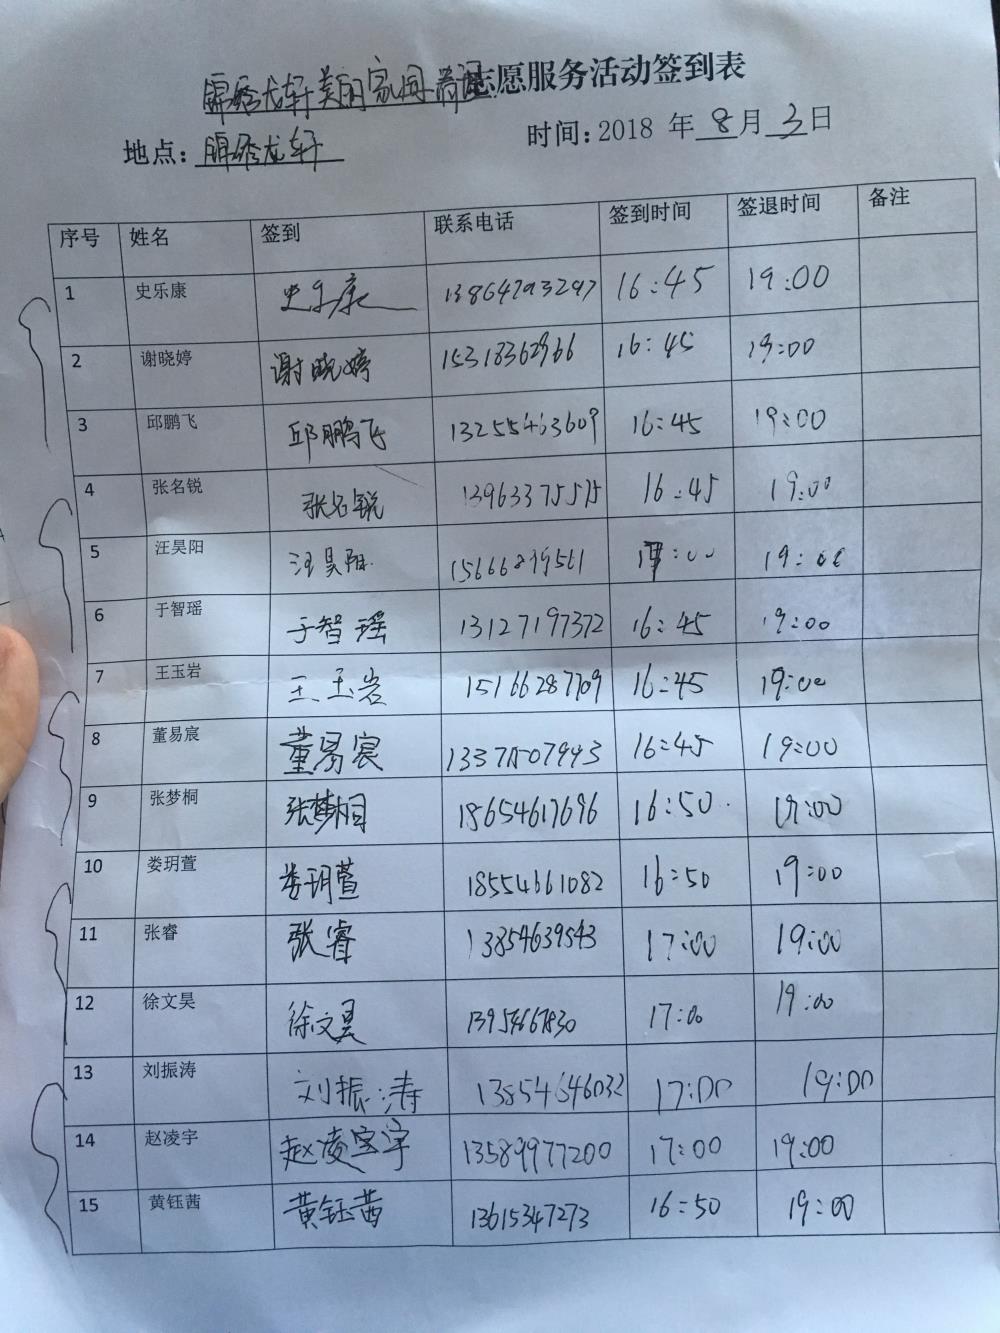 锦秀龙轩美丽家园 志愿服务活动签到表
地点：锦秀龙轩 时间：2018 年 8 月 3 日
序号 姓名 签到 联系电话 签到时间 签退时间 备注
1 史乐康 史乐康 13864793297 16:45 19:00
2 谢晓婷 谢晓婷 15318362966 16:45 19:00
3 邱鹏飞 邱鹏飞 13255463609 16:45 19:00
4 张名锐 张名锐 13963375575 16:45 19:00
5 汪昊阳 汪昊阳 15666839561 17:00 19:00
6 于智瑶 于智瑶 13127197372 16:45 19:00
7 王玉岩 王玉岩 15166287709 16:45 19:00
8 董易宸 董易宸 13371507943 16:45 19:00
9 张梦桐 张梦桐 18654617696 16:50 19:00
10 娄玥萱 娄玥萱 18554661082 16:50 19:00
11 张睿 张睿 13854639543 17:00 19:00
12 徐文昊 徐文昊 17:00 19:00
13 刘振涛 刘振涛 13854646032 17:00 19:00
14 赵凌宇 赵凌宇 13589977200 17:00 19:00
15 黄钰茜 黄钰茜 13615347273 16:50 19:00